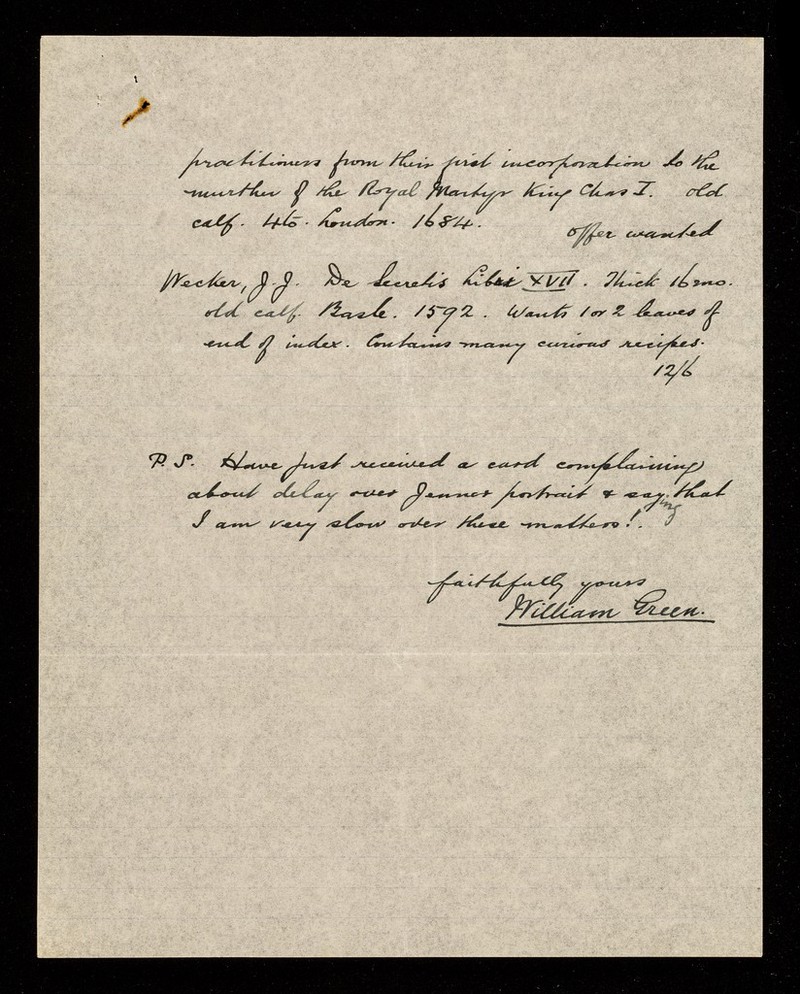 practitioners from their first incorporation to the
murther of the Royal Martyr King Chas I. old
calf. 4to. London. 1684.
offer wanted
Wecker, J. J. De Secretis Libri XVII. Thick 16mo.
old calf. Basle. 1592. Wants 1 or 2 leaves of
end of index. Contains many curious recipes.
12/6
P. S. Have just received a card complaining
about delay over Jenner portrait & saying that
I am very slow over these matters!.
faithfully yours
William Green.